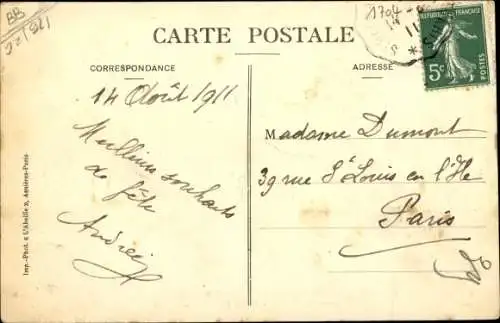 BB
1704
CARTE POSTALE
CORRESPONDANCE
ADRESSE
RÉPUBLIQUE FRANÇAISE
5c
POSTES
14 Août 1911
Meilleurs souhaits
de fête
Andrée
Madame Dumont
39 rue St Louis en l'Ile
Paris
Imp.-Phot. « L'Abeille », Asnières-Paris